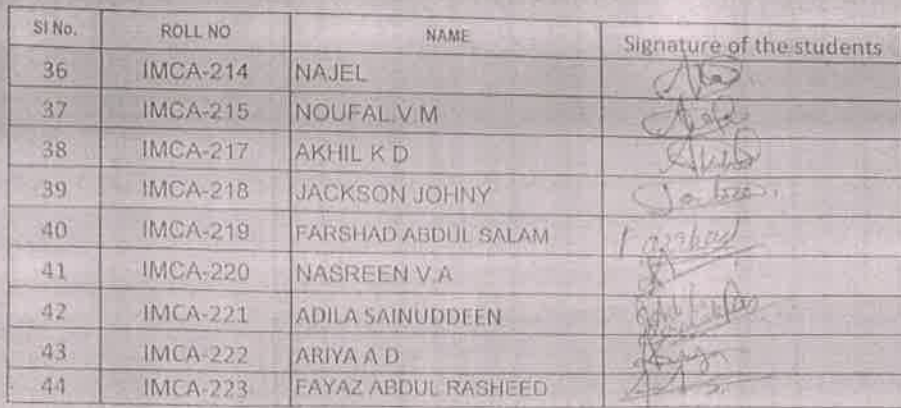 SI No. ROLL NO NAME Signature of the students
36 IMCA-214 NAJEL
37 IMCA-215 NOUFAL.V.M
38 IMCA-217 AKHIL K D
39 IMCA-218 JACKSON JOHNY
40 IMCA-219 FARSHAD ABDUL SALAM
41 IMCA-220 NASREEN V.A
42 IMCA-221 ADILA SAINUDDEEN
43 IMCA-222 ARIYA A D
44 IMCA-223 FAYAZ ABDUL RASHEED